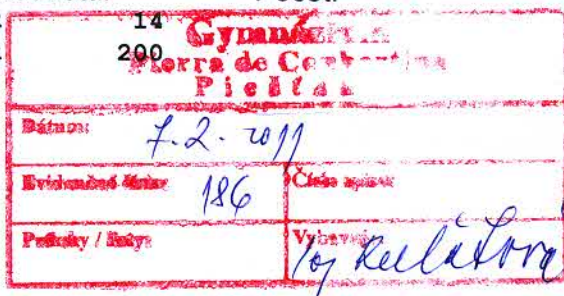 14
200
Gymnázium
Pierra de Coubertina
Piešťany
Dátum: 7.2.2011
Evidenčné číslo: 186
Číslo spisu:
Prílohy / listy:
Vybavuje: